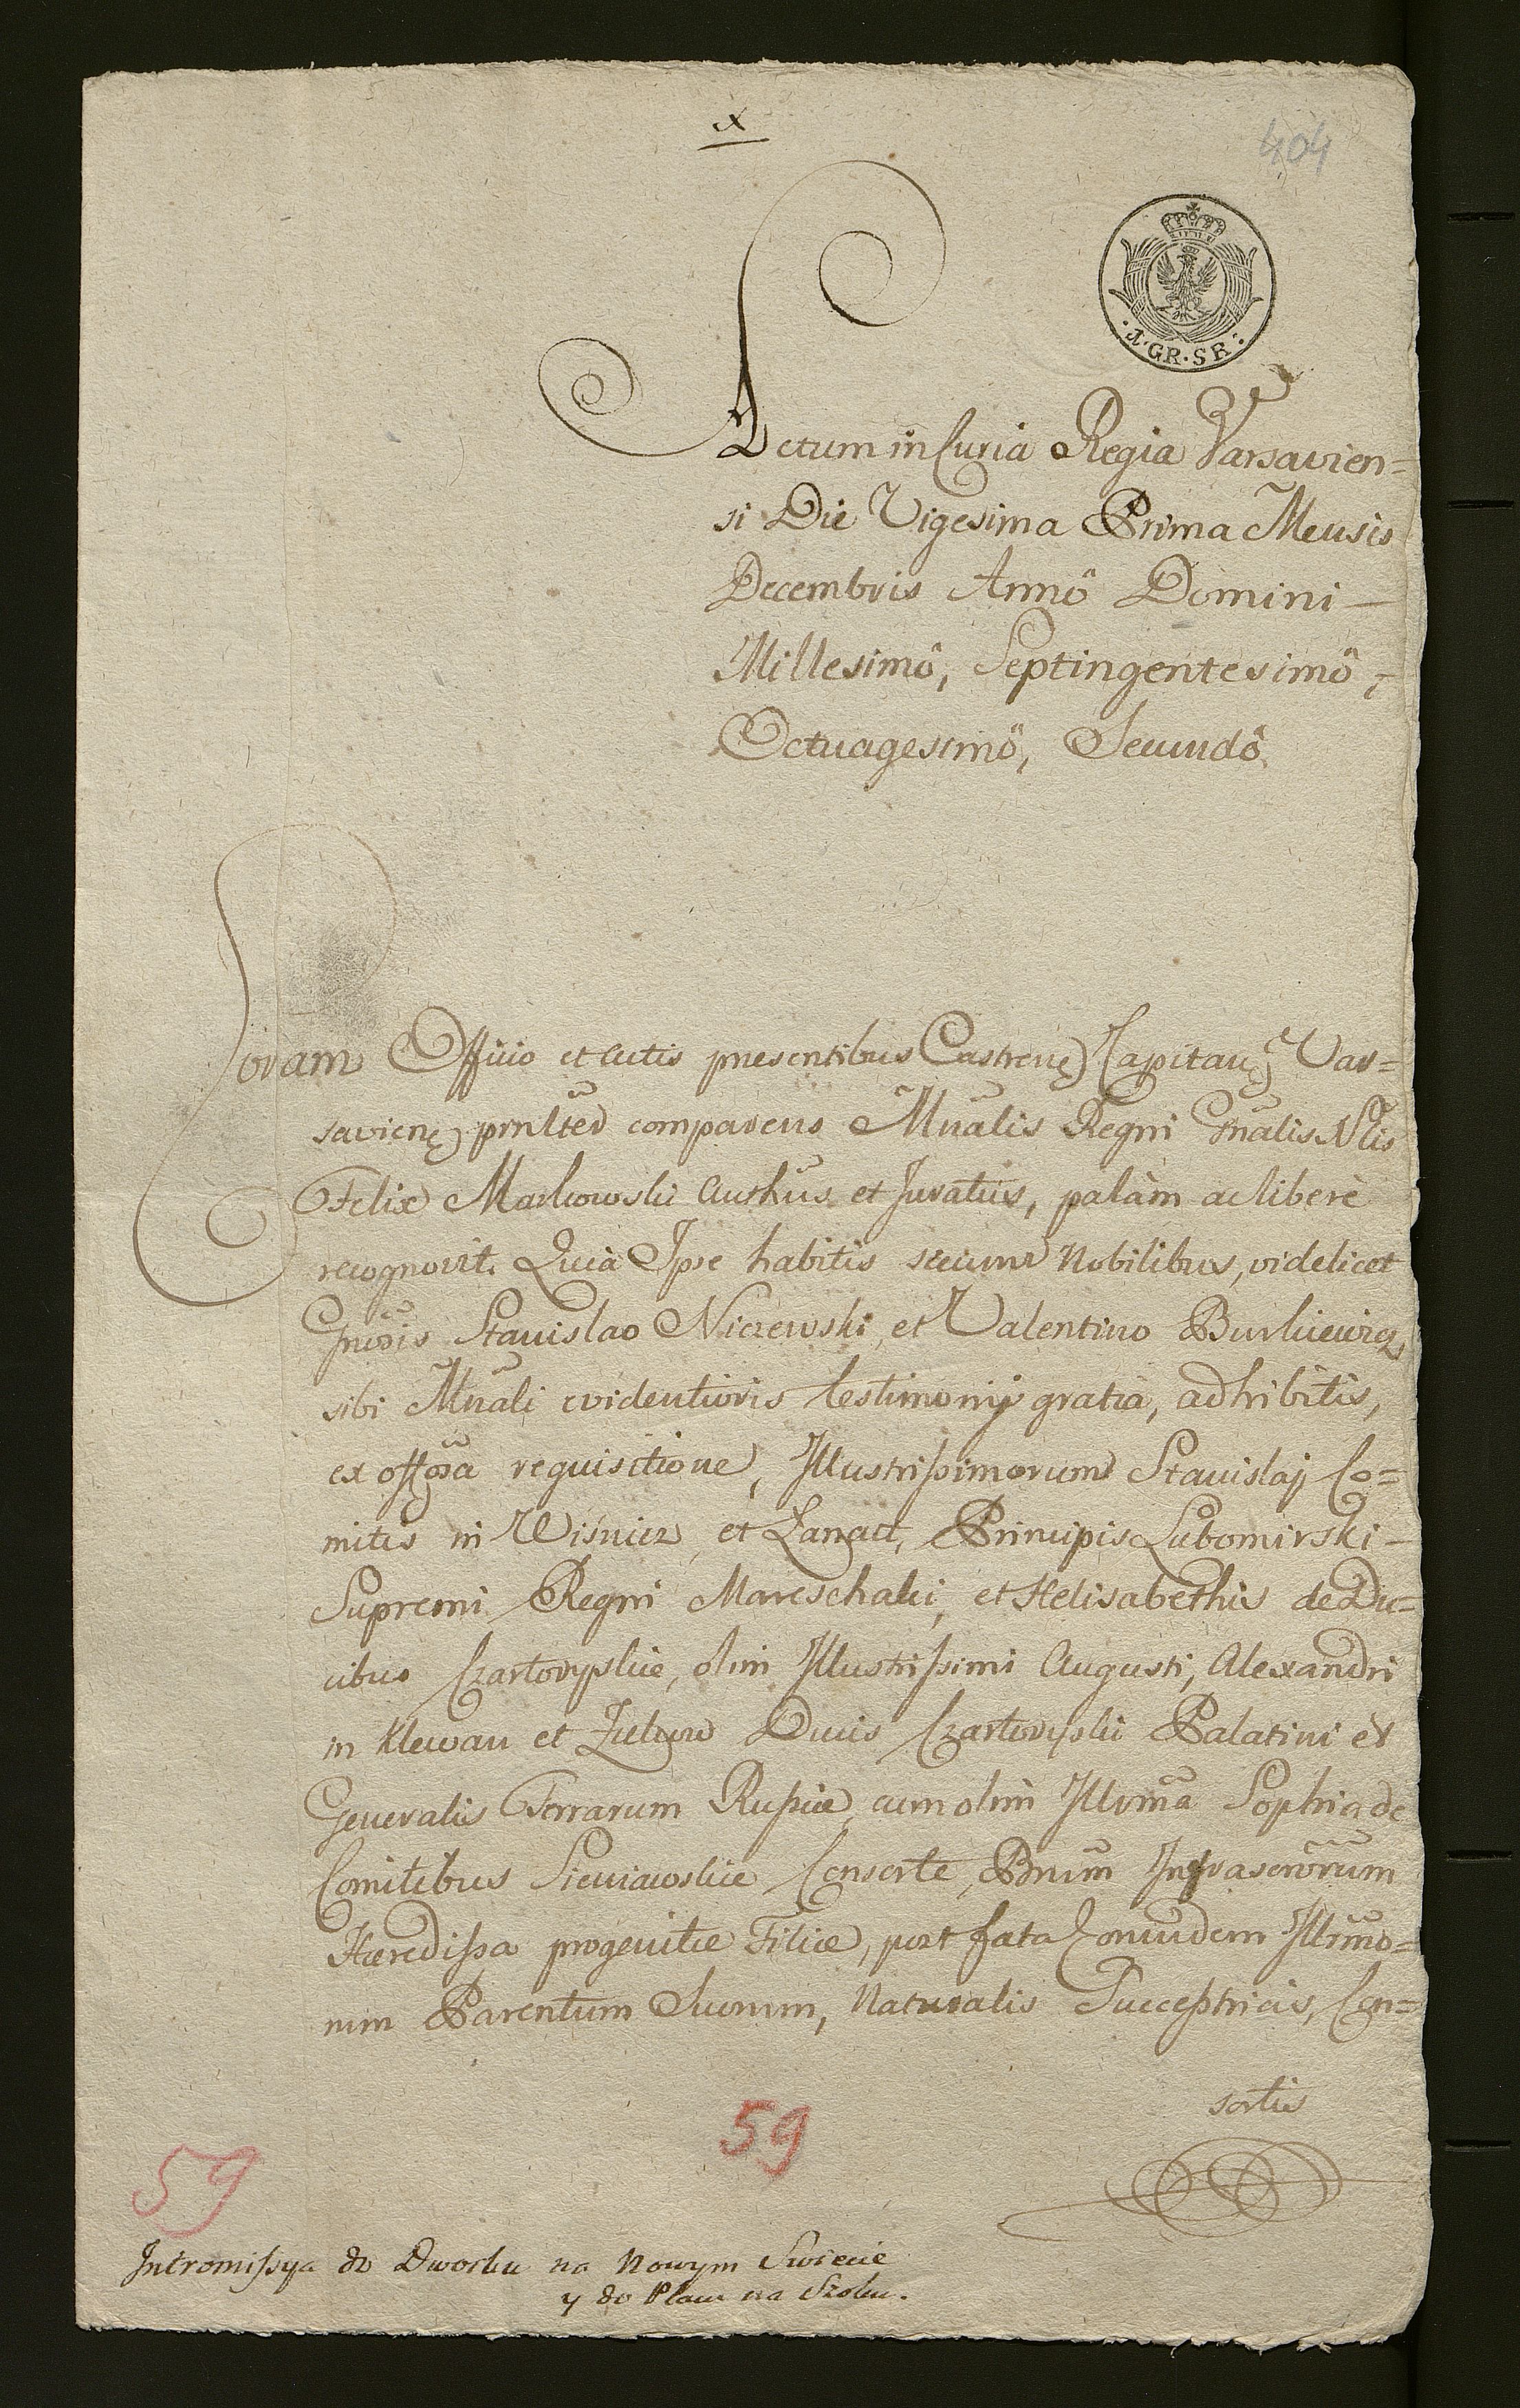 x
404
1·GR·SR:
Actum in Curia Regia Varsavien=
si Die Vigesima Prima Mensis
Decembris Annô Domini —
Millesimô, Septingentesimô,
Octuagesimô, Secundô
Coram Officio et Actis presentibus Castren) Capitan) Var=
savien) prnlter comparens Mnalis Regni Gnalis Nlis
Felix Markowski Authus et Juratus, palàm ac liberè
recognovit. Quia Ipse habitis secum Nobilibus, videlicet
Gnosis Stanislao Niczewski, et Valentino Burkiewicz
sibi Mnali evidentioris testimonij gratia, adhibitis,
ex offosa requisitione, Illustrissimorum Stanislaj Co=
mitis in Wisnicz, et Lancut, Principis Lubomirski —
Supremi Regni Mareschalci, et Helisabethis de Du=
cibus Czartoryskie, olim Illustrissimi Augusti, Alexandri
in Klewan et Zukow Ducis Czartoryski Palatini et
Generalis Terrarum Russiæ, cum olim Illrma Sophia de
Comitibus Sieniawskie Consorte, Bnum Infrascrorum
Hæredissa progenitæ Filiæ, post fata Eorundem Illrmo=
rum Parentum Suorum, Naturalis Successtricis, Con=
sortis
59
59
Intromissya do Dworku na Nowym Swiecie
y do Placu na Szolcu.